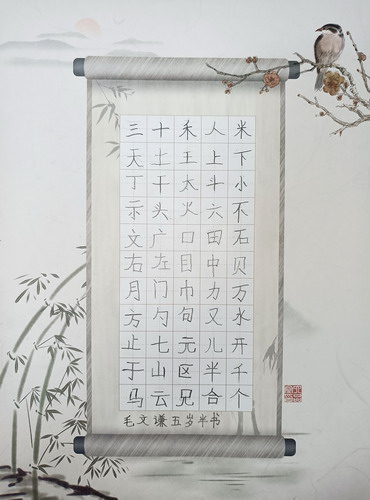 三十禾人米
天土王上下
丁干太斗小
示头火六不
文广口田石
右左目中贝
月门巾力万
方勺句又水
止七元儿开
于山区半千
马云见合个
毛文谦五岁半书